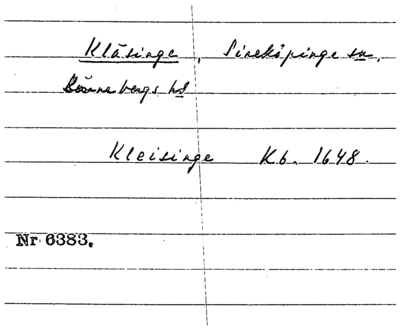 Kläsinge, Simeköpinge sn,
Bönnebergs hd
Kleisinge Kb. 1648.
Nr 6383.